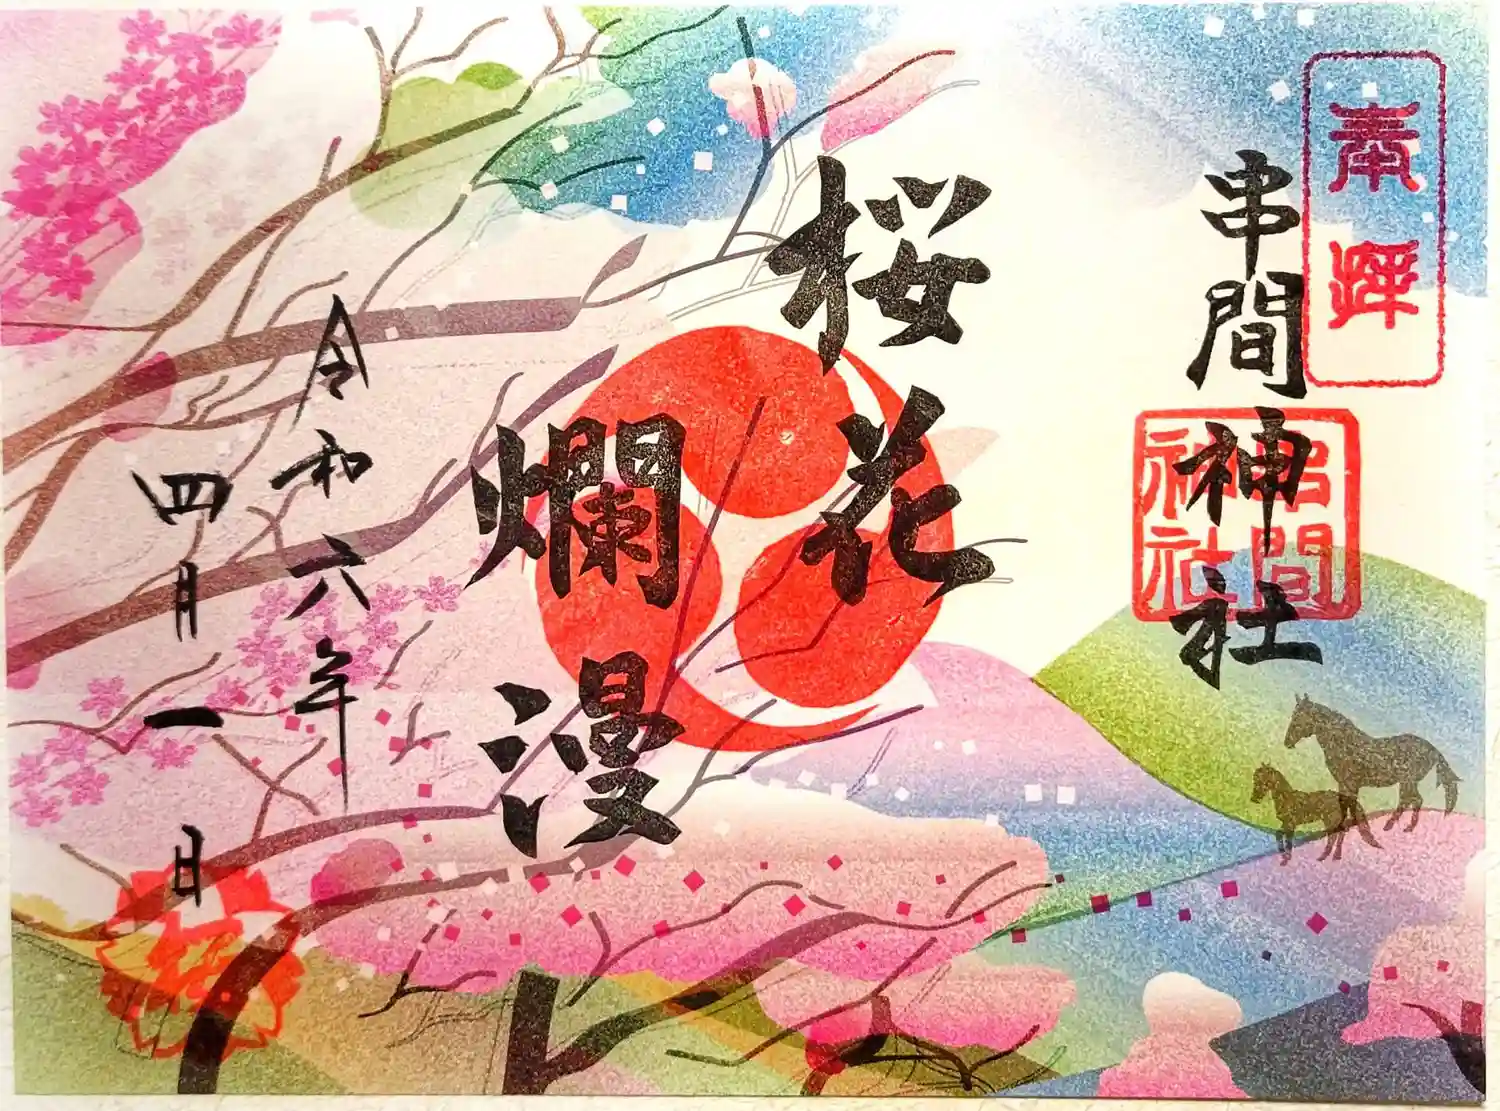 奉拝
串間神社
串間
神社
桜花
爛漫
令和六年
四月一日
桜